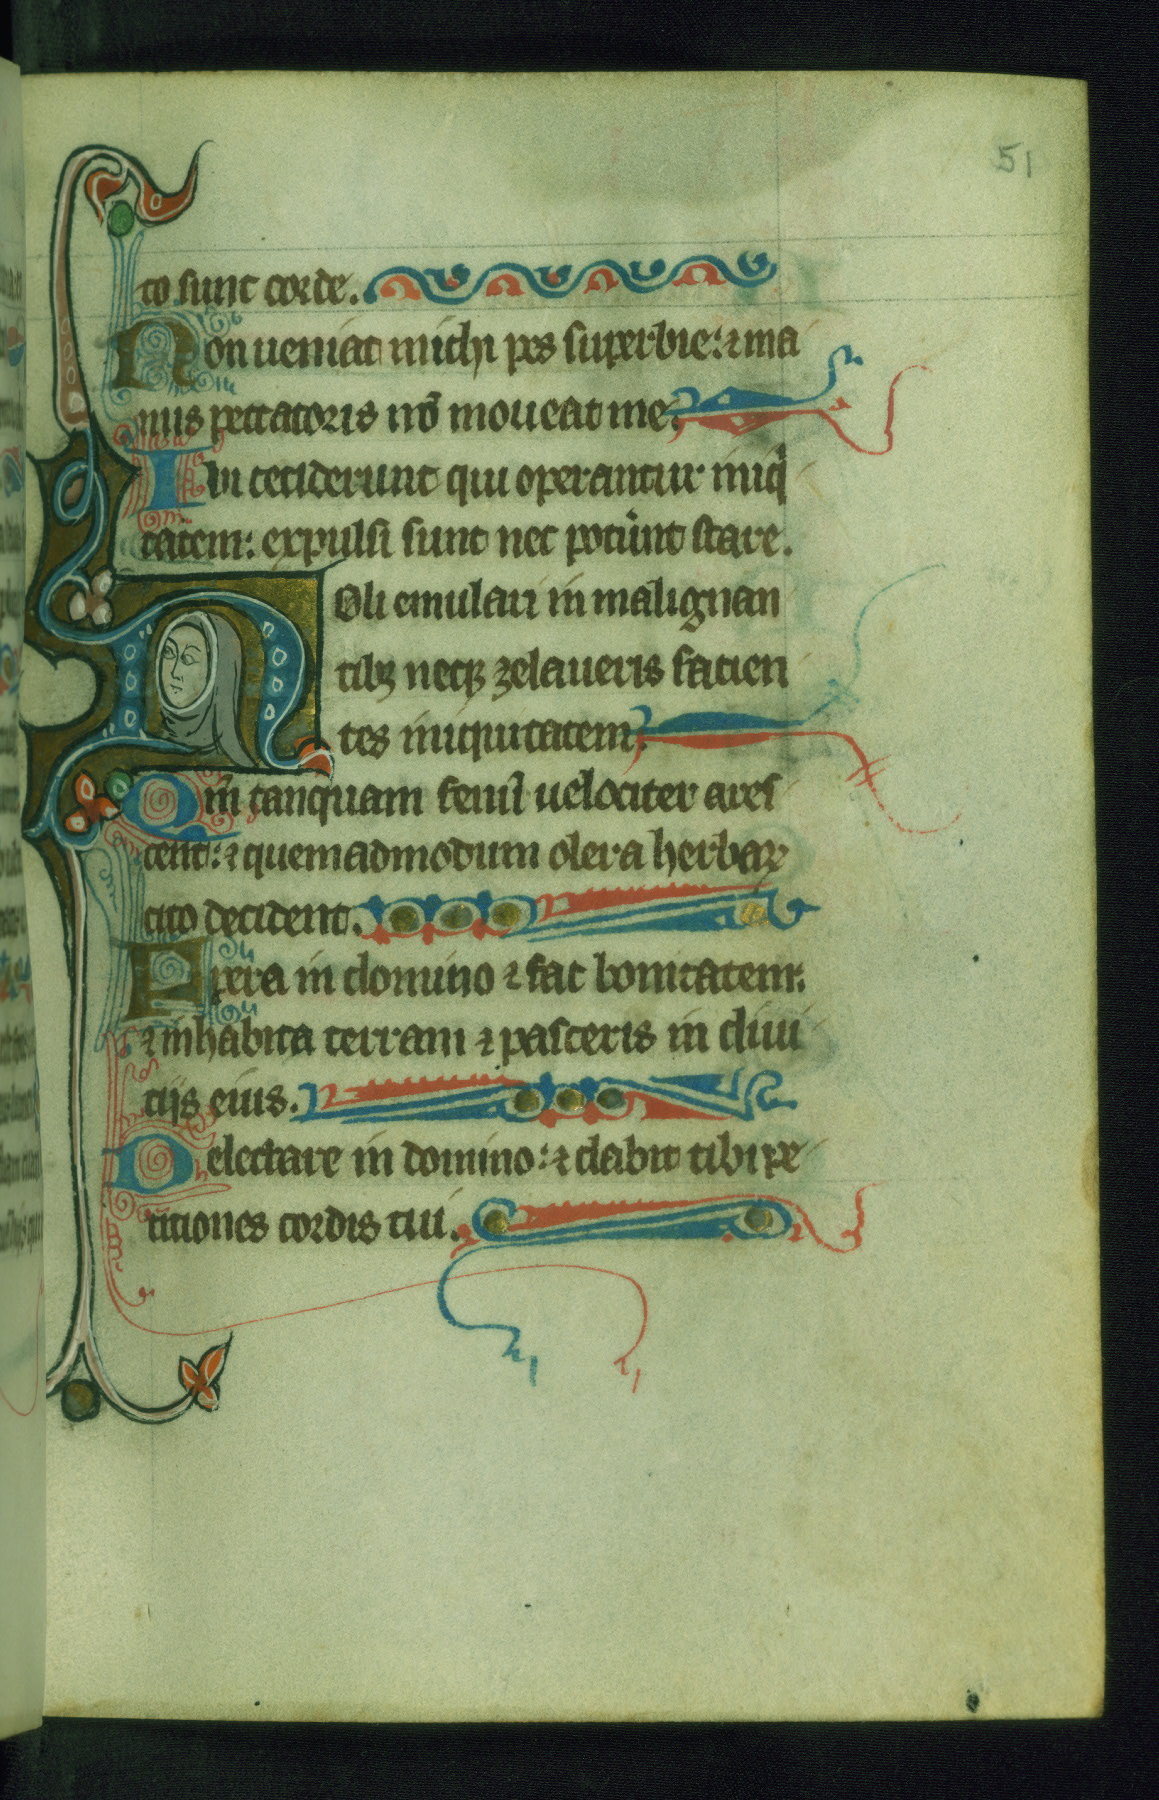 51
to sunt corde.
Non ueniat michi pes superbie: ⁊ ma
nus peccatoris nō moueat me.
Ibi ceciderunt qui operantur iniqͥ
tatem: expulsi sunt nec potūnt stare.
Noli emulari in malignan
tibꝫ neqꝫ zelaueris facien
tes iniquitatem.
Qm̄ tanquam fenū uelociter ares
cent: ⁊ quemadmodum olera herbaꝝ
cito decident.
Spera in domino ⁊ fac bonitatem:
⁊ inhabita terram ⁊ pasceris in diui
tijs eius.
Delectare in domino: ⁊ dabit tibi pe
titiones cordis tui.